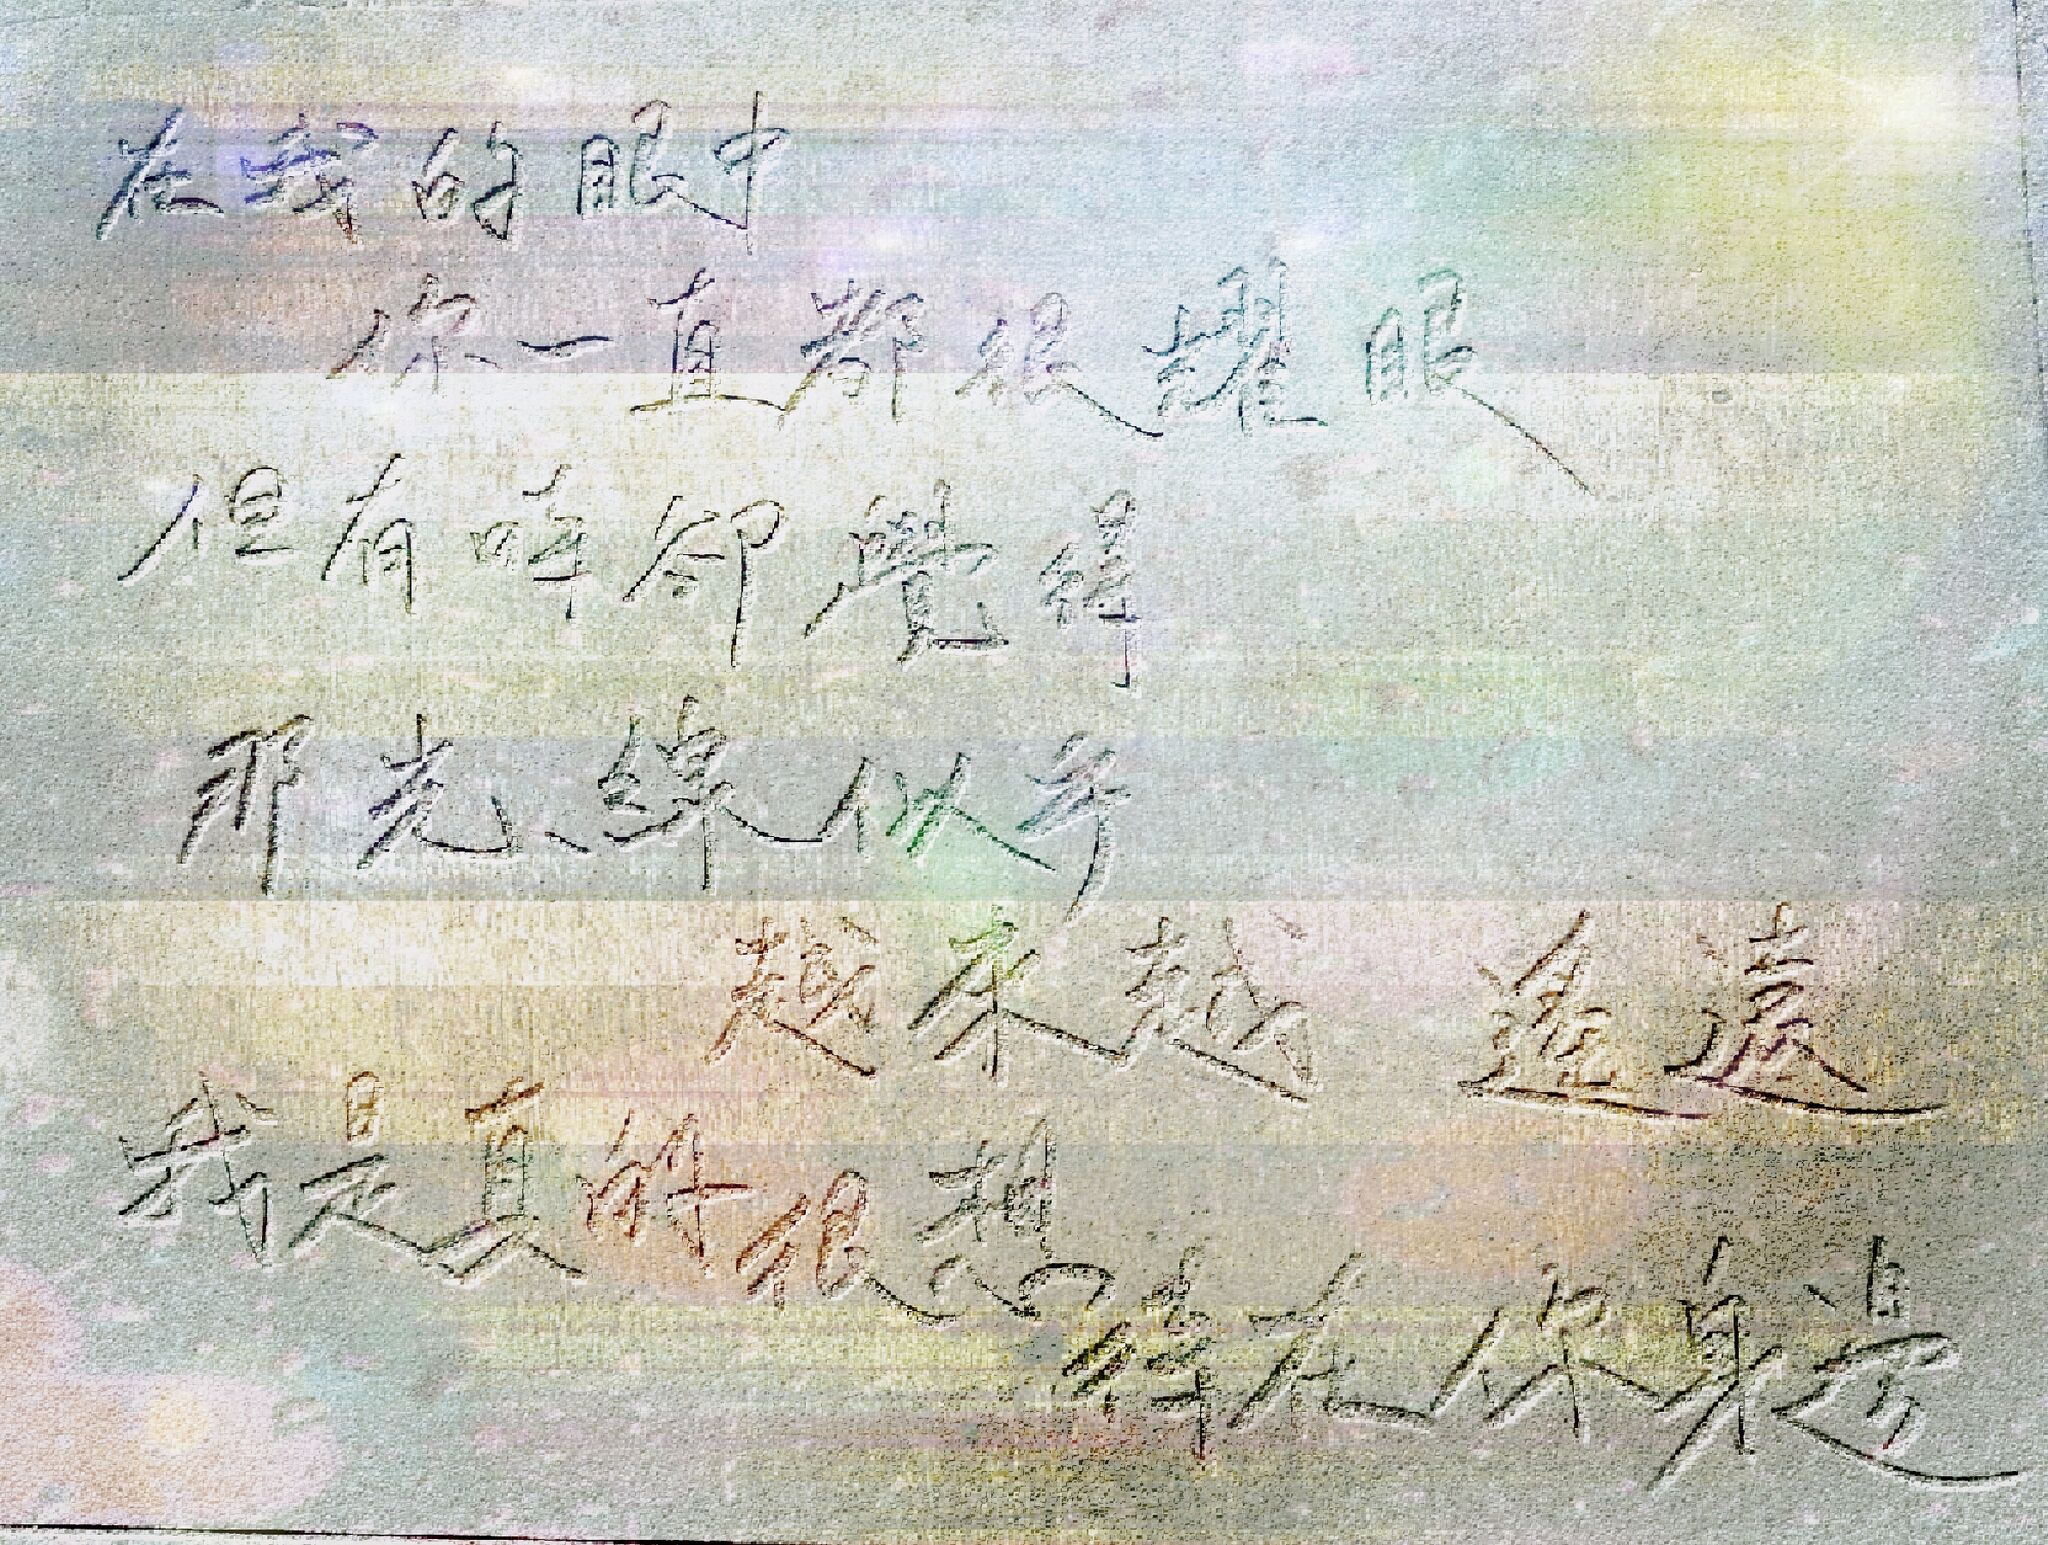 在我的眼中
你一直都很耀眼
但有時卻覺得
那光線似乎
越來越 遙遠
我是真的很想
待在你身邊